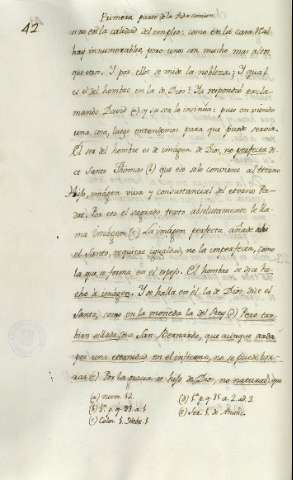 42
Primera parte de la
sino en la calidad del empleo: como en la
hay innumerables, pero unos con mucho mas
que otros. Y por ello se mide la nobleza; Y qual
es el del hombre en la de Dios? Ya respondió
mando David (a) y su ser lo
una cosa, luego entendemos para que puede servir.
El ser del hombre es de imagen de Dios, no perfecta di-
ce Santo Thomas (b) que eso solo conviene al eterno
Hijo, imagen viva y consustancial del eterno Pa-
dre. Por eso el sagrado texto absolutamente le lla-
ma Imagen (c) La imagen perfecta, añade
el Santo, requiere igualdad, no la imperfecta, como
la que se forma en el espejo. El hombre se dice he-
cho a imagen. Y se halla en él la de Dios, dice el
Santo, como en la moneda la del Rey (d) Pero tan
bien sellada, dice San Bernardo, que aunque arda
por una eternidad en el infierno, no se puede bor-
rar (e) Por la gracia es hijo de Dios, no natural, que
(a)
(b) 1ª p. q. 93. a. 1
(c) Colos. 1. Hebr. 1
(d) 1ª p. q. 93. a. 2. ad. 3
(e) Ser. 1. de Anunc.